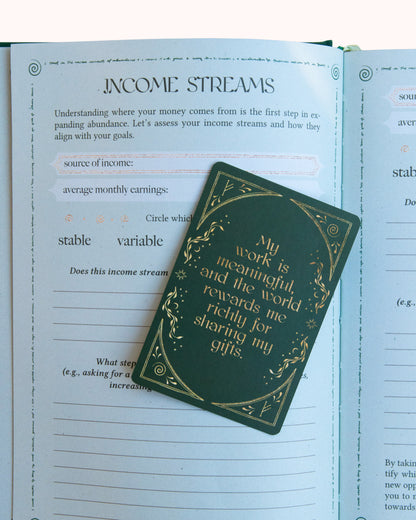 INCOME STREAMS
Understanding where your money comes from is the first step in ex-
panding abundance. Let's assess your income streams and how they
align with your goals.
source of income:
average monthly earnings:
Circle which
stable variable
Does this income stream
What step
(e.g., asking for a
increasing
My
work is
meaningful,
and the world
rewards me
richly for
sharing my
gifts.
sour
aver
Do
(e.g.
By takin
tify whi
new opp
you to m
towards